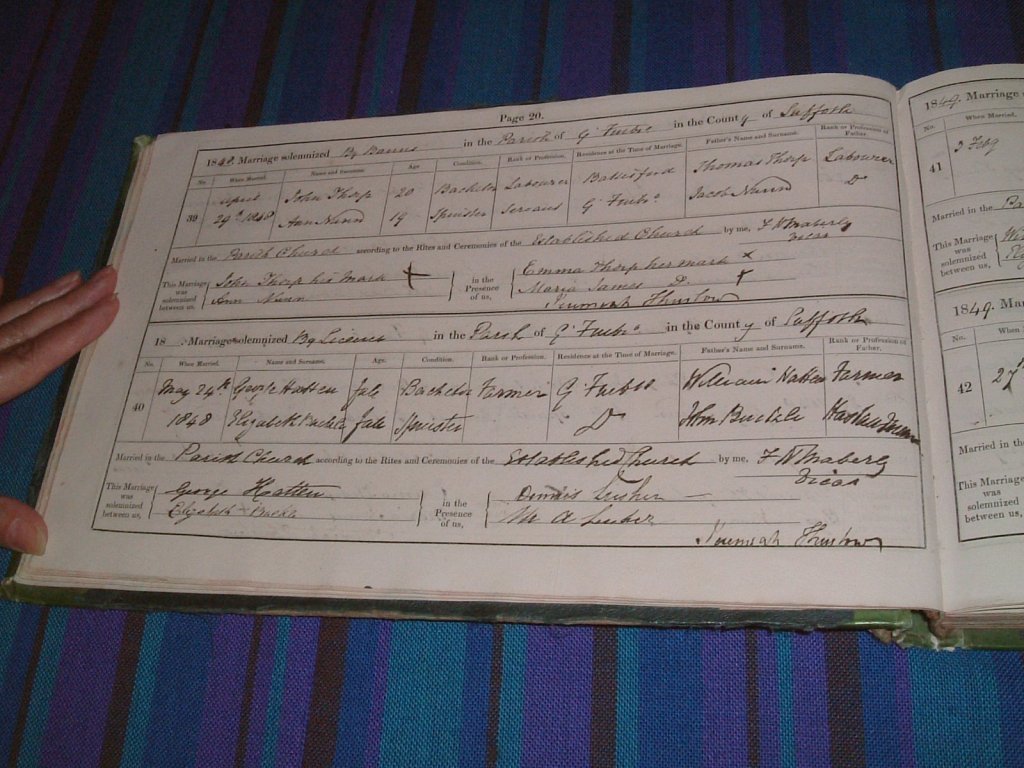 Page 20.
1848. Marriage solemnized By Banns in the Parish of G' in the County of Suffolk
No. When Married. Name and Surname. Age Condition. Rank or Profession. Residence at the Time of Marriage. Father's Name and Surname. Rank or Profession of Father.
39 April John Thorp 20 Bachelor Labourer Battisford Thomas Thorp Labourer
29th 1848 Ann Nunn 19 Spinster Servant G' Jacob Nunn Do
Married in the Parish Church according to the Rites and Ceremonies of the Established Church by me, F W Maberly
Vicar
This Marriage was solemnized between us, John Thorp his mark +
Ann Nunn
in the Presence of us, Emma Thorp her mark x
Maria James D. +
Jeremiah Thurlow
18 . Marriage solemnized By Licence in the Parish of G' in the County of Suffolk
No. When Married. Name and Surname. Age. Condition. Rank or Profession. Residence at the Time of Marriage. Father's Name and Surname. Rank or Profession of Father.
40 May 24th George Hatten Bachelor Farmer G' William Hatten Farmer
1848 Elizabeth Spinster Do
Married in the Parish Church according to the Rites and Ceremonies of the Established Church by me, F W Maberly
Vicar
This Marriage was solemnized between us, George Hatten
Elizabeth
in the Presence of us, Dennis
M A
Jeremiah Thurlow
1849. Marriage
No. When Married.
41 3 Feby
Married in the
This Marriage was solemnized between us,
1849. Mar
No. When
42 27
Married in the
This Marriage was solemnized between us,